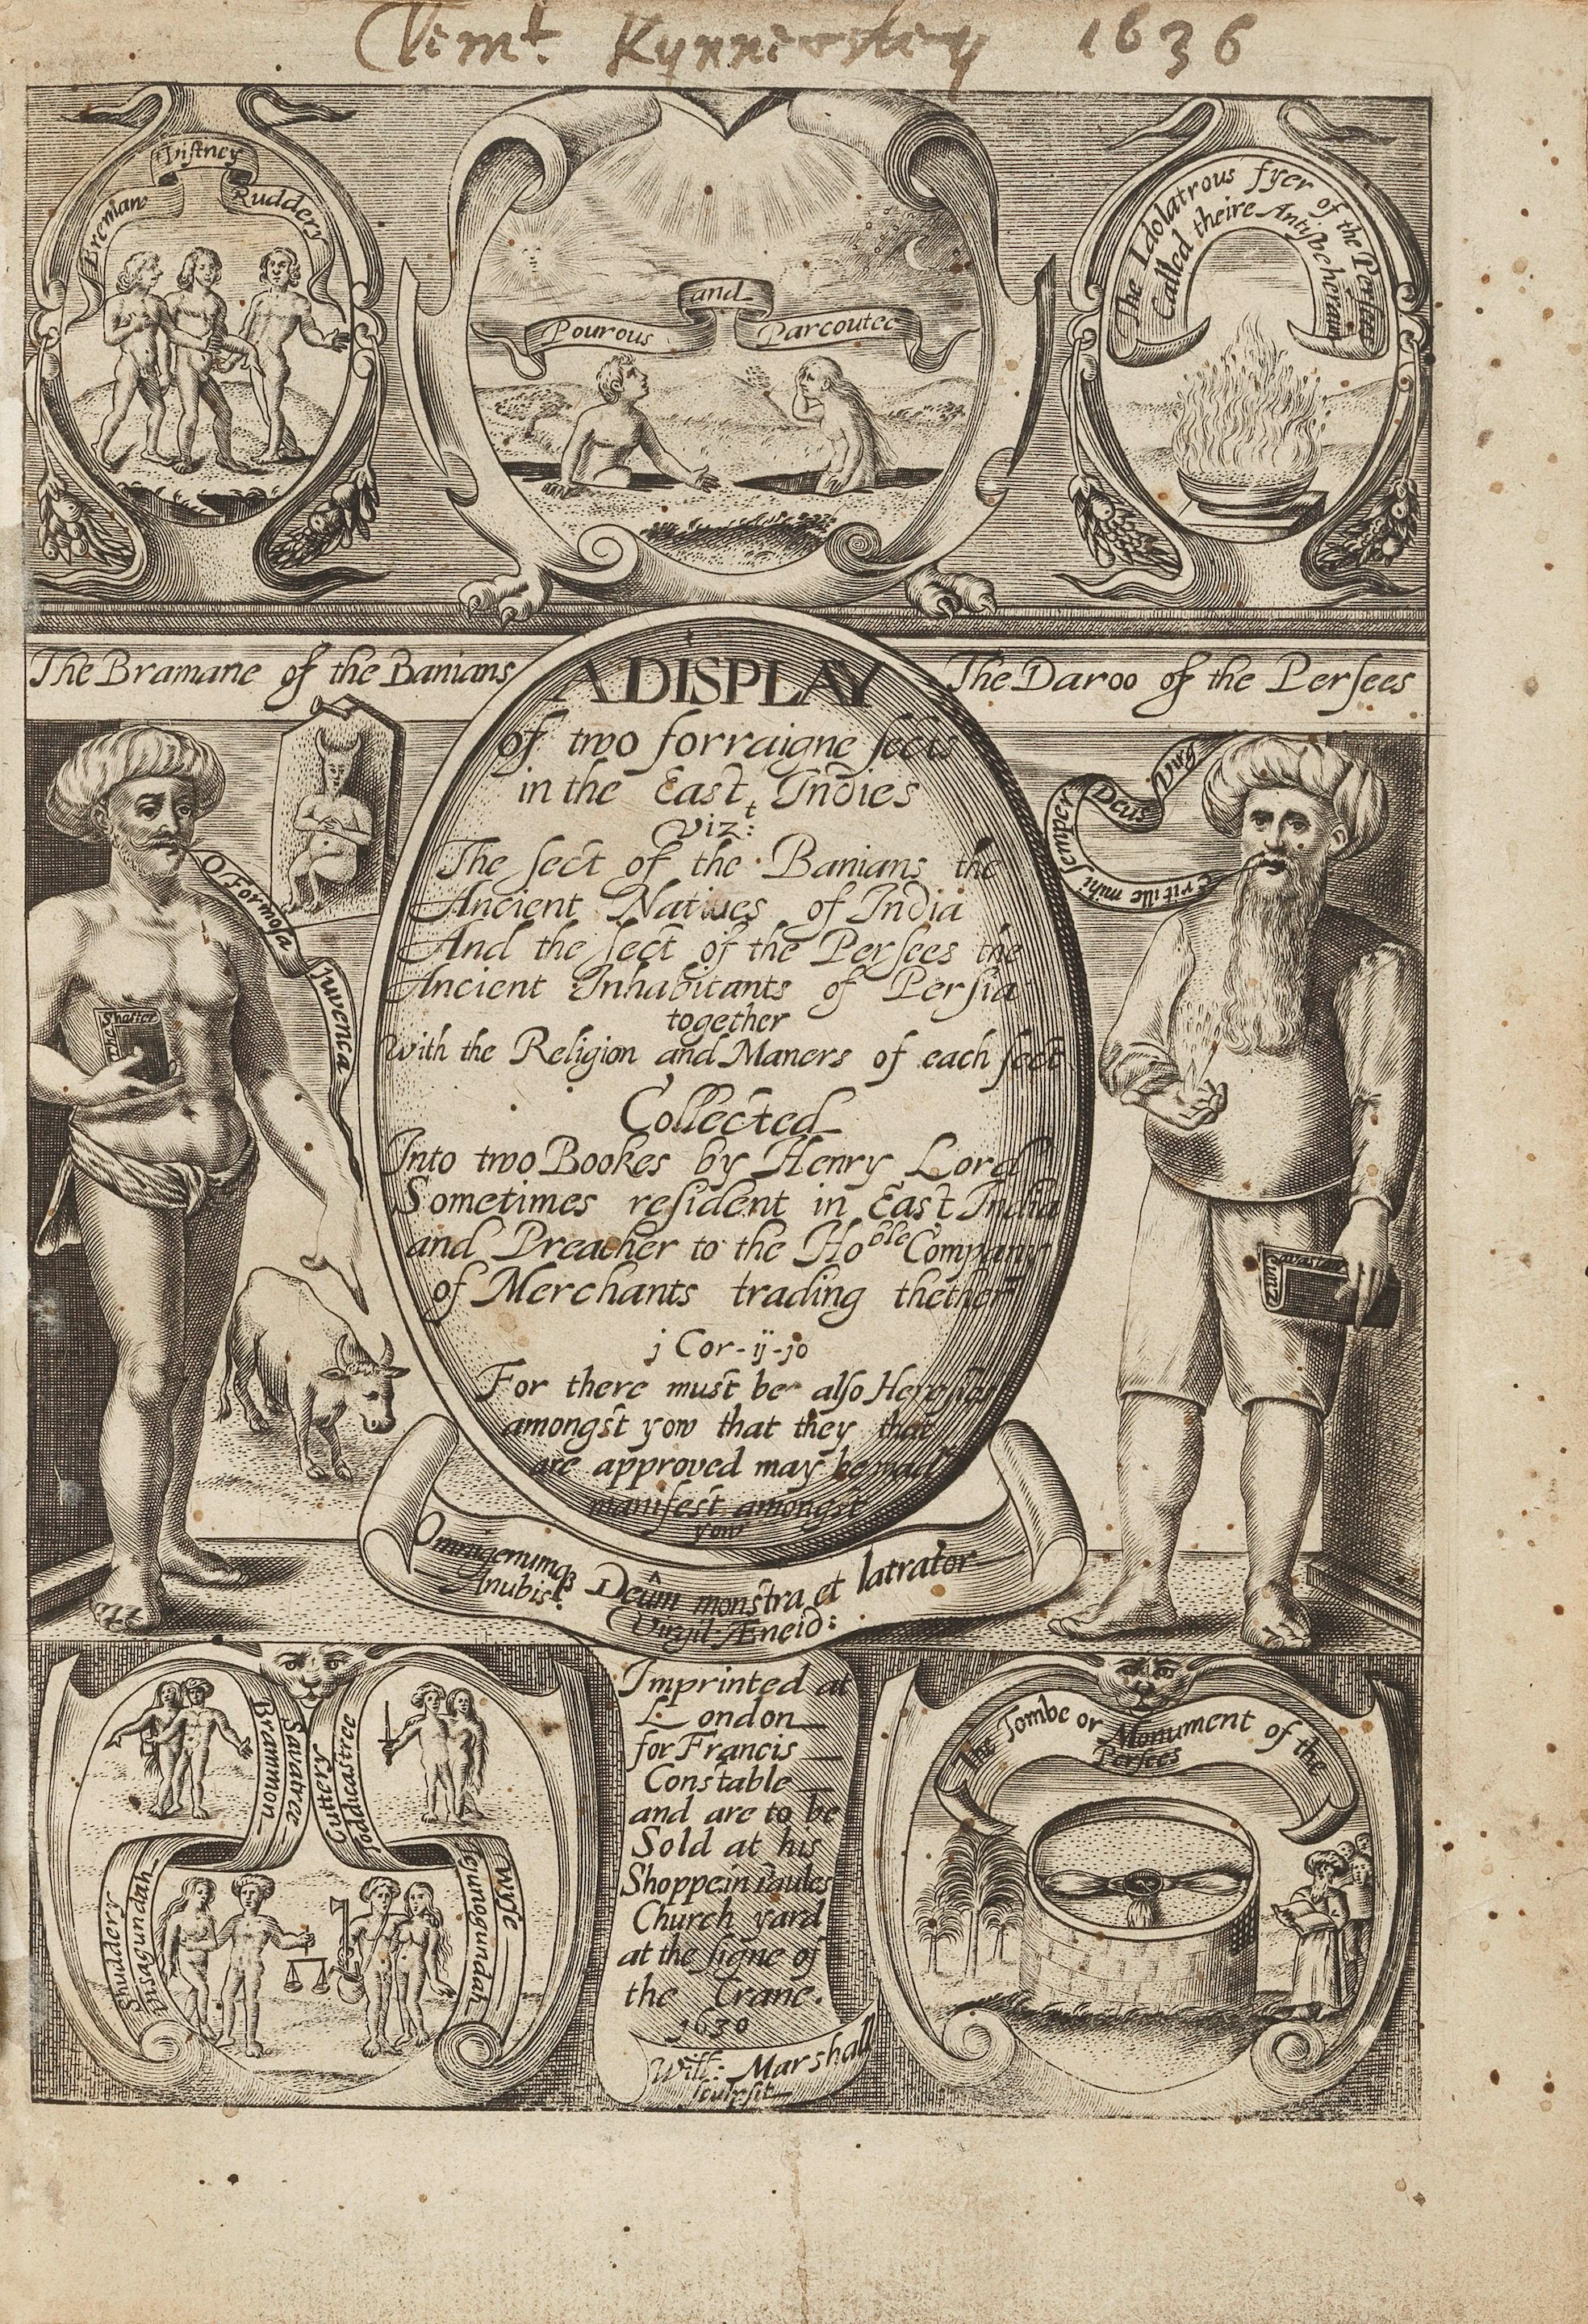 Clemt. Kynnersley 1636
Bremaw
Vistney
Ruddery
Pourous
and
Parcoutee
The Idolatrous fyer of the Persees
Called theire Antisbeheraun
The Bramane of the Banians
The Daroo of the Persees
O Formosa
Juvenca
The Shaster
Erit ille mihi semper
Deus
A DISPLAY
of two forraigne sects
in the East Indies
vizt:
The sect of the Banians the
Ancient Natives of India
And the sect of the Persees the
Ancient Inhabitants of Persia
together
with the Religion and Maners of each sect
Collected
Into two Bookes by Henry Lord
Sometimes resident in East India
and Preacher to the Hoble Company
of Merchants trading thether
j Cor-ij-jo
For there must be also Heresies
amongst yow that they that
are approved may be mad
manifest amongst
yow
Omnigenumqȝ Deûm monstra et latrator
Anubis:
Virgil: Æneid:
Brammon
Savatree
Cuttery
Toddicastree
Shuddery
Visagundah
Wyse
Jejunogundah
Imprinted at
London
for Francis
Constable
and are to be
Sold at his
Shoppe in Paules
Church yard
at the signe of
the Crane.
1630
Will: Marshall
sculpsit
The Tombe or Monument of the
Persees